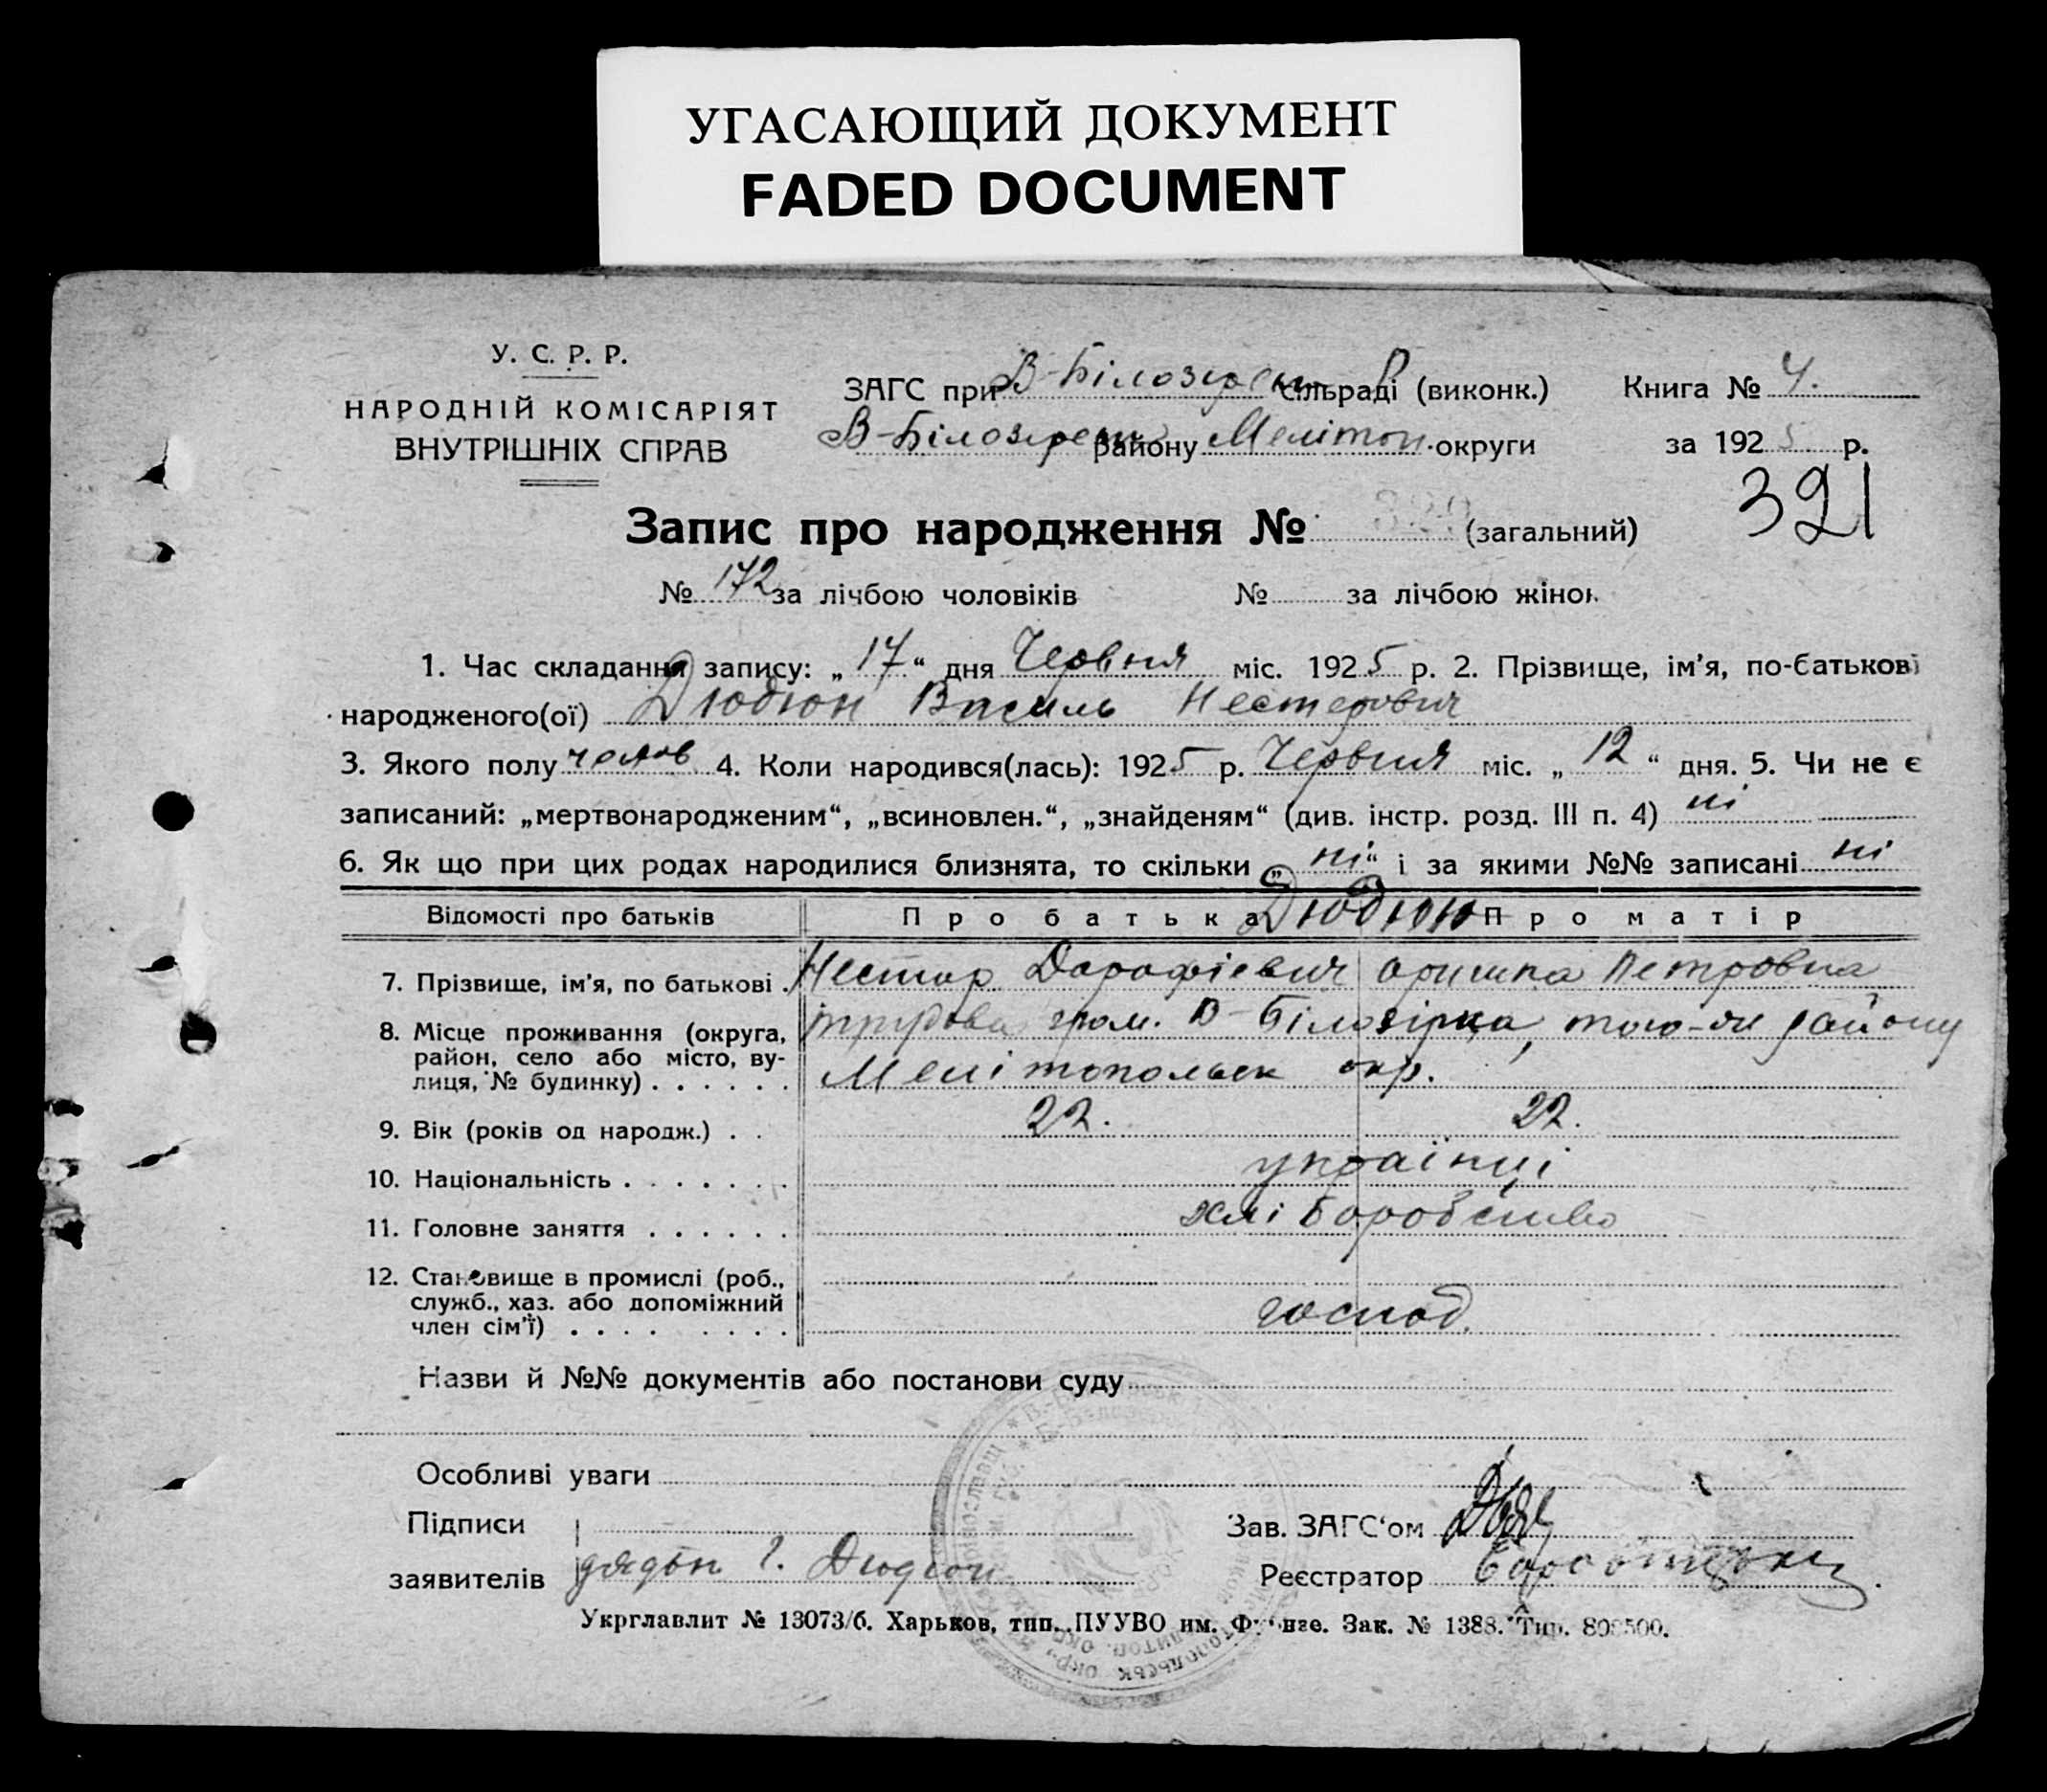 УГАСАЮЩИЙ ДОКУМЕНТ
FADED DOCUMENT
У. С. Р. Р.
НАРОДНІЙ КОМІСАРІЯТ
ВНУТРІШНІХ СПРАВ
ЗАГС при В-Білозерськ сільраді (виконк.)
В-Білозерськ району Мелітоп. округи
Книга № 4.
за 1925 р.
321
Запис про народження № (загальний)
№ 172 за лічбою чоловіків № за лічбою жінок
1. Час складання запису: „17“ дня Червня міс. 1925 р. 2. Прізвище, ім'я, по-батькові
народженого(ої) Дюдюн Василь Нестерович
3. Якого полу чолов 4. Коли народився(лась): 1925 р. Червня міс. „12“ дня. 5. Чи не є
записаний: „мертвонародженим“, „всиновлен.“, „знайденям“ (див. інстр. розд. III п. 4) ні
6. Як що при цих родах народилися близнята, то скільки „ні“ і за якими №№ записані ні
Відомості про батьків Про батька Дюдюн Про матір
7. Прізвище, ім'я, по батькові . Нестор Дорофієвич Оришка Петровна
8. Місце проживання (округа, гром. В-Білозірка, того-ж району
район, село або місто, ву-
лиця, № будинку) . . . . . . Мелітопольськ окр.
9. Вік (років од народж.) . . 22. 22.
10. Національність . . . . . . . українці
11. Головне заняття . . . . . . хліборобство
12. Становище в промислі (роб.,
служб., хаз. або допоміжний
член сім'ї) . . . . . . . . господ.
Назви й №№ документів або постанови суду
Особливі уваги
Підписи
заявителів Г. Дюдюн
Зав. ЗАГС'ом
Реєстратор
Укрглавлит № 13073/б. Харьков, тип. ПУУВО им. Фрунзе. Зак. № 1388. Тир.